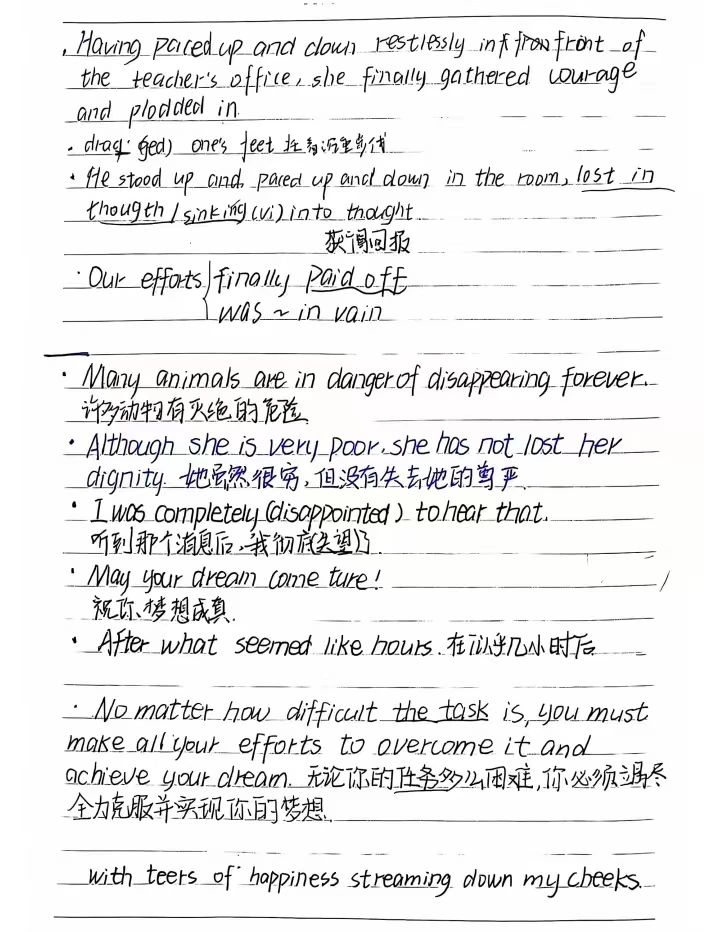 · Having paced up and down restlessly in front of
the teacher's office, she finally gathered courage
and plodded in.
· drag (ged) one's feet 拖着沉重步伐
· He stood up and, paced up and down in the room, lost in
thougth / sinking (vi) into thought
获得回报
· Our efforts finally paid off
was ~ in vain
· Many animals are in danger of disappearing forever.
许多动物有灭绝的危险
· Although she is very poor, she has not lost her
dignity. 她虽然很穷,但没有失去她的尊严.
· I was completely (disappointed) to hear that.
听到那个消息后,我彻底失望了
· May your dream come ture!
祝你梦想成真.
· After what seemed like hours. 在似乎几小时后
· No matter how difficult the task is, you must
make all your efforts to overcome it and
achieve your dream. 无论你的任务多么困难,你必须竭尽
全力克服并实现你的梦想.
with teers of happiness streaming down my cheeks.